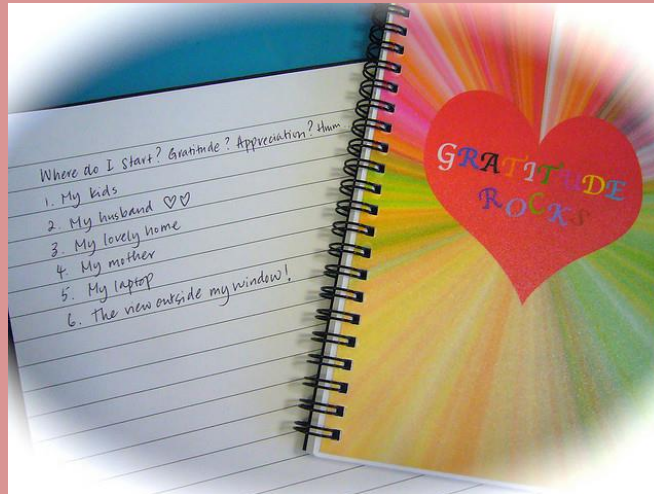 Where do I start? Gratitude? Appreciation? Hmm..
1. My kids
2. My husband ♡♡
3. My lovely home
4. My mother
5. My laptop
6. The view outside my window!
GRATITUDE
ROCKS